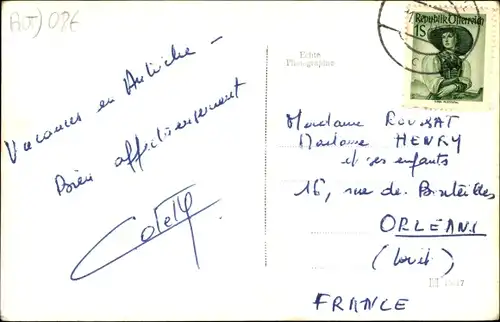 AUT) 08E
Vacances en Autriche -
Bien affectueusement
Republik Österreich
1S
Echte
Photographie
Madame ROUSSAT
Madame HENRY
et ses enfants
16, rue de
ORLEANS
(Loiret)
FRANCE